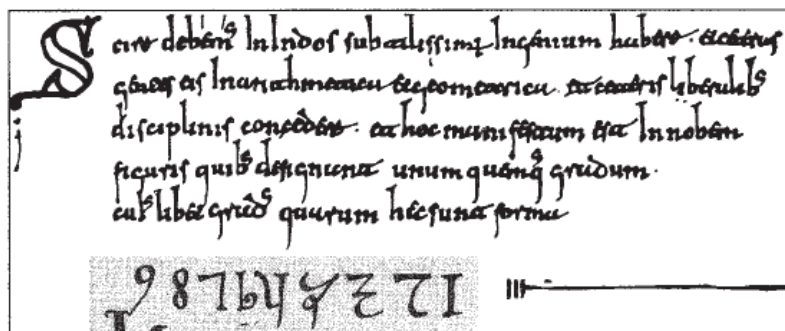 Scire debem᾿ In Indos subtilissimū Ingenium habere . et ceteras
gentes eis In arithmetica et geometrica . et ceteris liberalib᾿
disciplinis concedere . et hoc manifestum est In nobem
figuris quib᾿ designant unum quemq᾿ gradum .
cui᾿libet grad᾿ quarum hec sunt forma
9 8 7 6 5 4 3 2 1